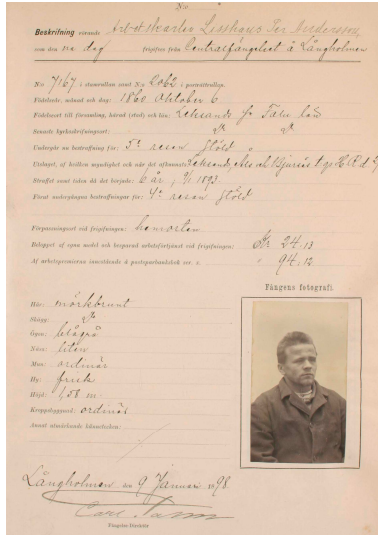 No
Beskrifning rörande Arbetskarlen Lisshans Per Andersson,
som den na dag frigifves från Centralfängelset å Långholmen
No 7167 i stamrullan samt No 6062 i porträttrullan.
Födelseår, månad och dag: 1860 Oktober 6
Födelseort till församling, härad (stad) och län: Leksands fg Falu län
Senaste kyrkoskrifningsort:
Undergår nu bestraffning för: 5te resan stöld
Utslaget, af hvilken myndighet och när det afkunnats: Leksand,
Straffet samt tiden då det började: 6 år, 9/1 1893.
Förut undergången bestraffning för: 4de resan stöld
Förpassningsort vid frigifningen: hemorten
Behållet af egna medel och besparad arbetsförtjenst vid frigifningen: Kr 24.13
Af arbetspremierna innestående å postsparbanksbok ser. o. " 94,12
Fångens fotografi.
Hår: mörkbrunt
Skägg:
Ögon: blågrå
Näsa: liten
Mun: ordinär
Hy: frisk
Höjd: 1,58 m.
Kroppsbyggnad: ordinär
Annat utmärkande kännetecken:
Långholmen den 9 Januari 1898.
Carl
Fängelse-Direktör